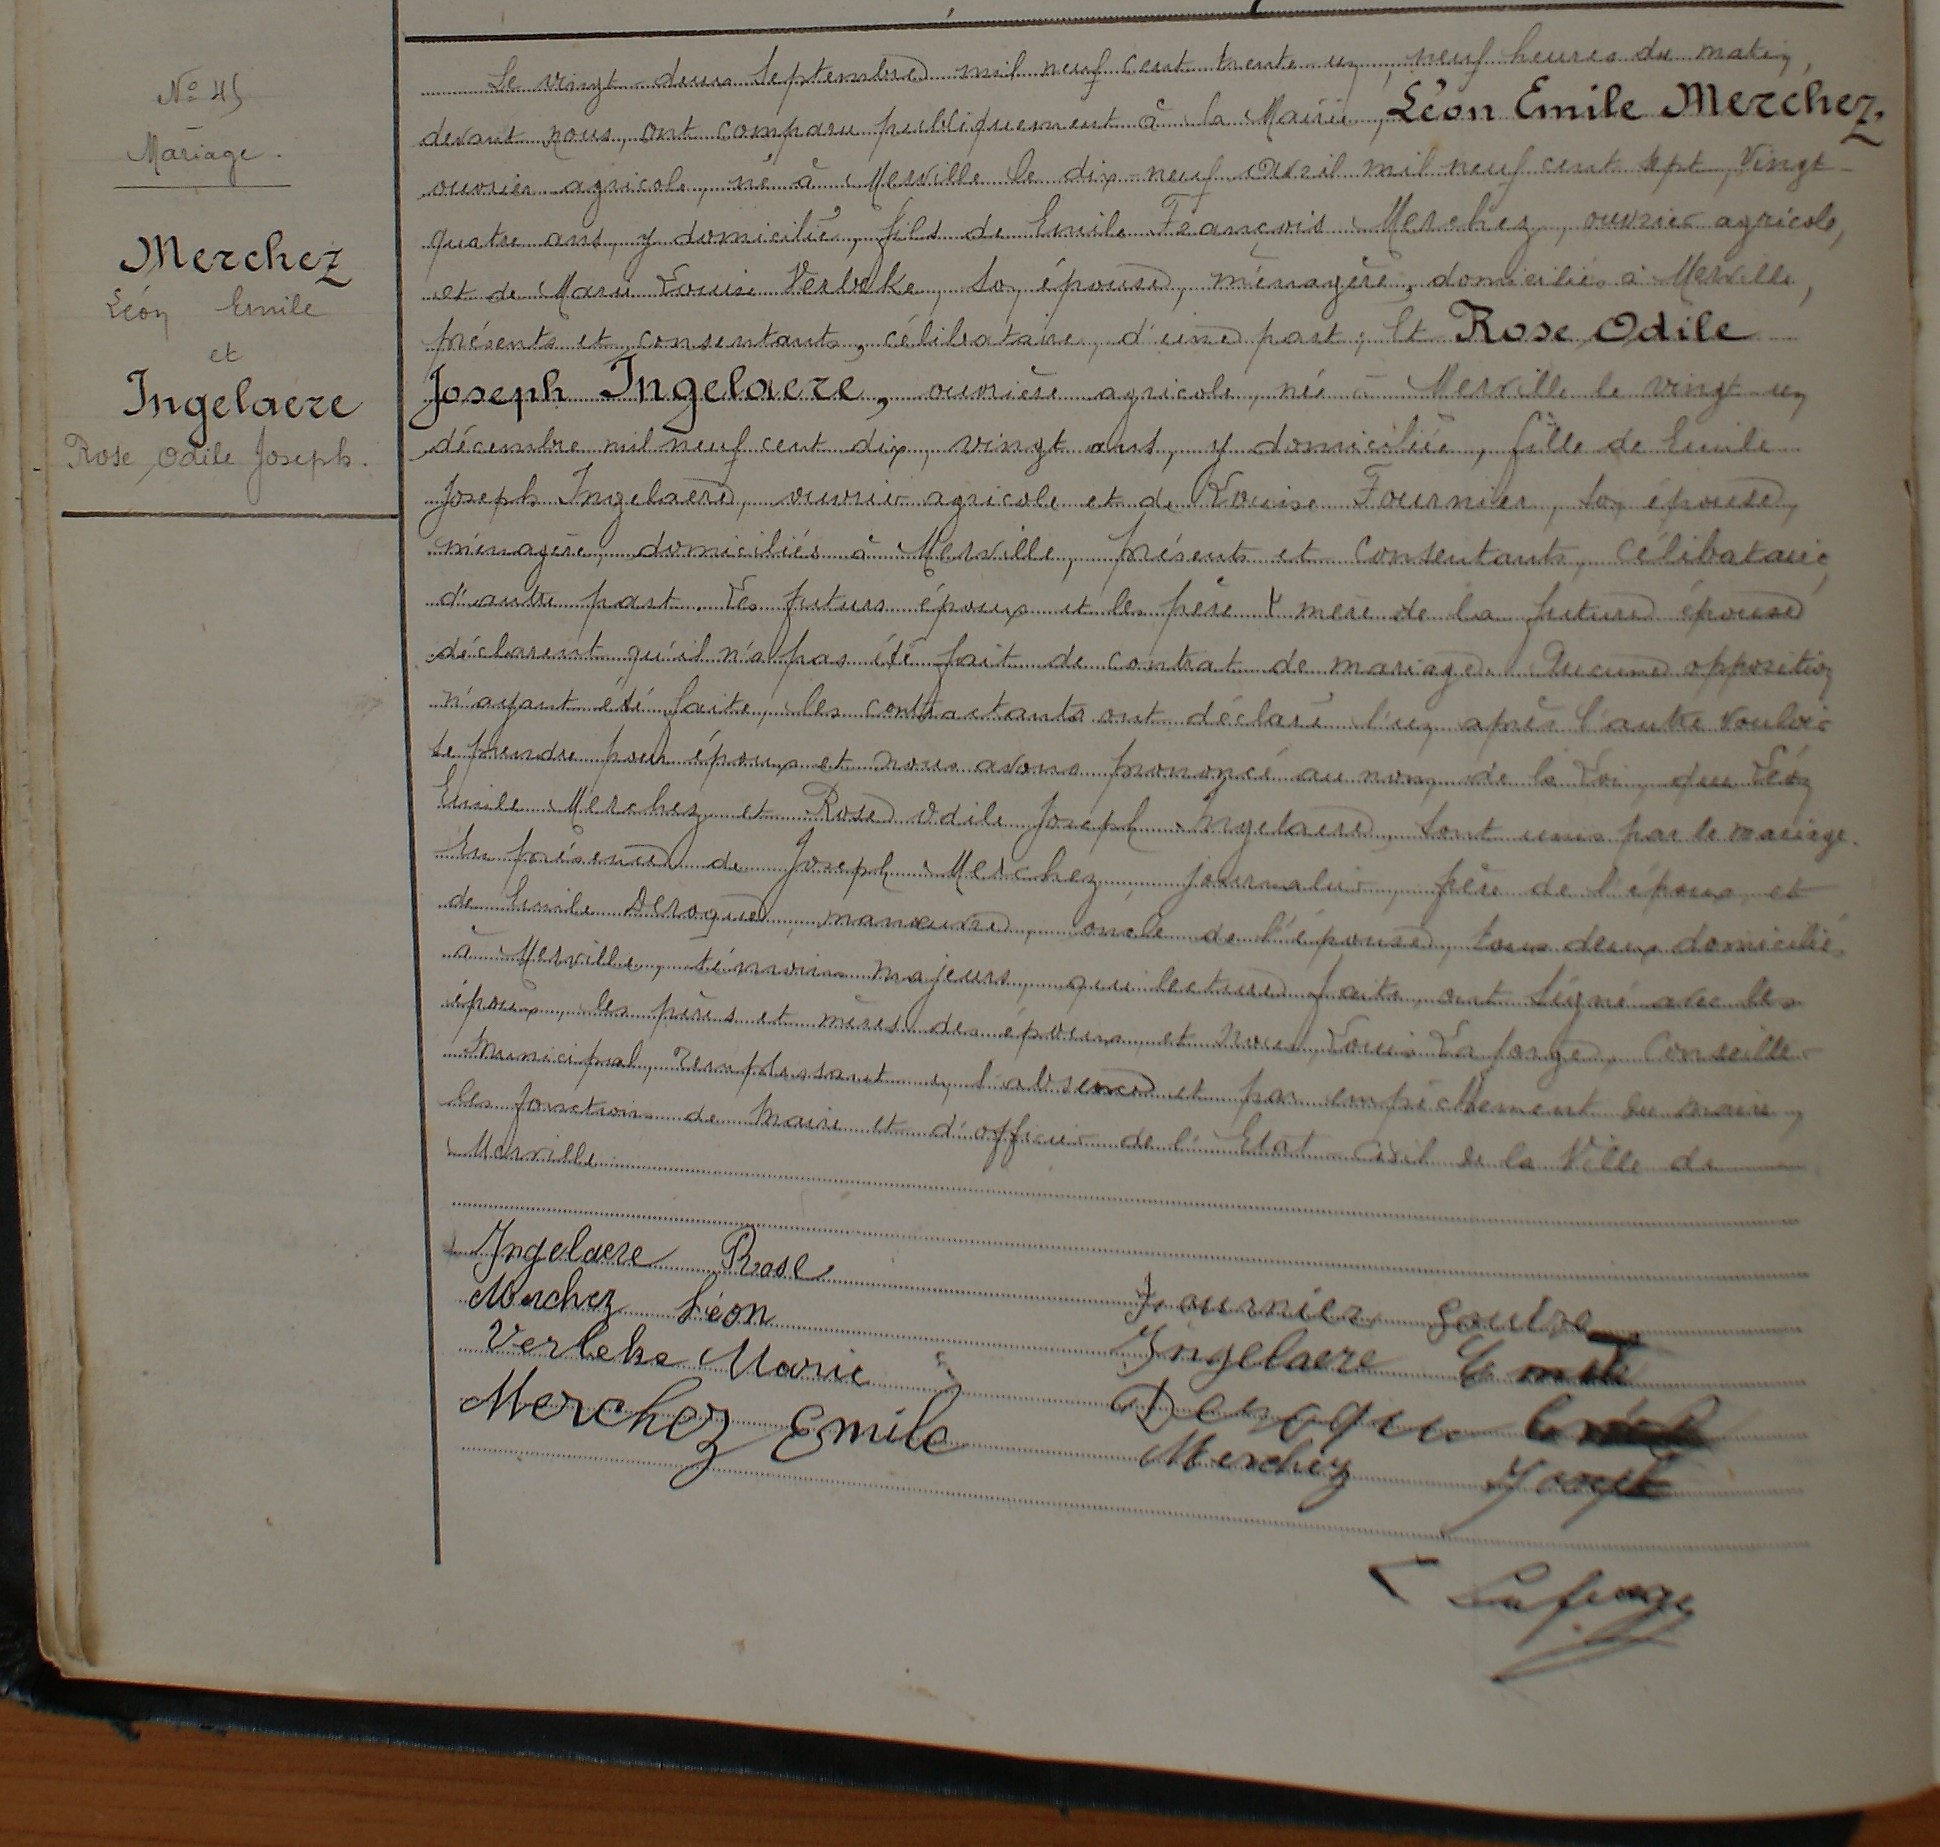 Nº 45
Mariage.
Merchez
Léon Emile
et
Ingelaere
Rose Odile Joseph.
Le vingt-deux Septembre mil neuf cent trente-un, neuf heures du matin,
devant nous, ont comparu publiquement à la Mairie, Léon Emile Merchez,
ouvrier agricole, né à Merville le dix-neuf Avril mil neuf cent sept, vingt-
quatre ans, y domicilié, fils de Emile François Merchez, ouvrier agricole,
et de Marie Louise Verbeke, son épouse, ménagère, domiciliés à Merville,
présents et consentants, célibataire, d'une part; Et Rose Odile
Joseph Ingelaere, ouvrière agricole, née à Merville le vingt-un
décembre mil neuf cent dix, vingt ans, y domiciliée, fille de Emile
Joseph Ingelaere, ouvrier agricole et de Louise Fournier, son épouse,
ménagère, domiciliés à Merville, présents et consentants, célibataire,
d'autre part. Les futurs époux et les père & mère de la future épouse
déclarent qu'il n'a pas été fait de contrat de mariage. Aucune opposition
n'ayant été faite, les contractants ont déclaré l'un après l'autre vouloir
se prendre pour époux et nous avons prononcé au nom de la Loi, que Léon
Emile Merchez et Rose Odile Joseph Ingelaere, sont unis par le mariage.
En présence de Joseph Merchez, journalier, père de l'époux, et
de Emile Deroque, manœuvre, oncle de l'épouse, tous deux domiciliés
à Merville, témoins majeurs, qui lecture faite, ont signé avec les
époux, les pères et mères des époux, et nous, Louis Laforge, Conseiller
Municipal, remplissant en l'absence et par empêchement du maire,
les fonctions de Maire et d'officier de l'Etat-Civil de la Ville de
Merville
Ingelaere Rose
Merchez Léon
Verbeke Marie
Merchez Emile
Fournier Louise
Ingelaere Emile
Deroque
Merchez Joseph
L Laforge